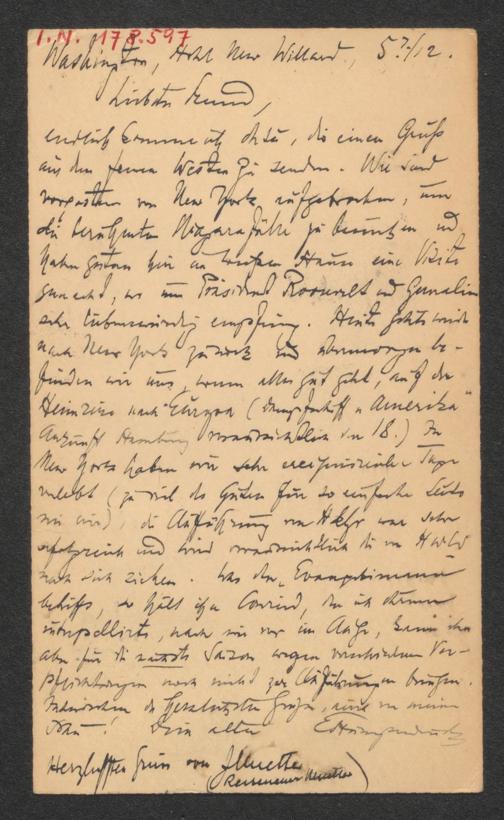 I. N. 178.597
Washington, Hotel New Willard, 5. 12.
Liebster Freund,
endlich komme ich dazu, dir einen Gruß
aus dem fernen Westen zu senden. Wir sind
vorgestern von New York aufgebrochen, um
die berühmten Niagarafälle zu besuchen und
haben gestern hier im weißen Hause eine Visite
gemacht, wo uns Präsident Roosevelt und Gemalin
sehr liebenswürdig empfing. Heute gehts wieder
nach New York zurück und übermorgen be-
finden wir uns, wenn alles gut geht, auf der
Heimreise nach Europa (Dampfschiff "Amerika"
Ankunft Hamburg voraussichtlich den 18.) In
New York haben wir sehr ereignisreiche Tage
verlebt (zu viel des Guten für so einfache Leute
wie wir), die Aufführung von H & Gr war sehr
erfolgreich und wird voraussichtlich die von
nach sich ziehen. Was den "Evangelimann"
betrifft, so hält ihn Conried, den ich darum
interpellirte, nach wie vor im Auge, kann ihn
aber für die nächste Saison wegen verschiedener Ver-
pflichtungen noch nicht zur Aufführung bringen.
die herzlichsten Grüße, auch von meiner
Frau! Dein alter EHumperdinck
Herzlichsten Gruss von